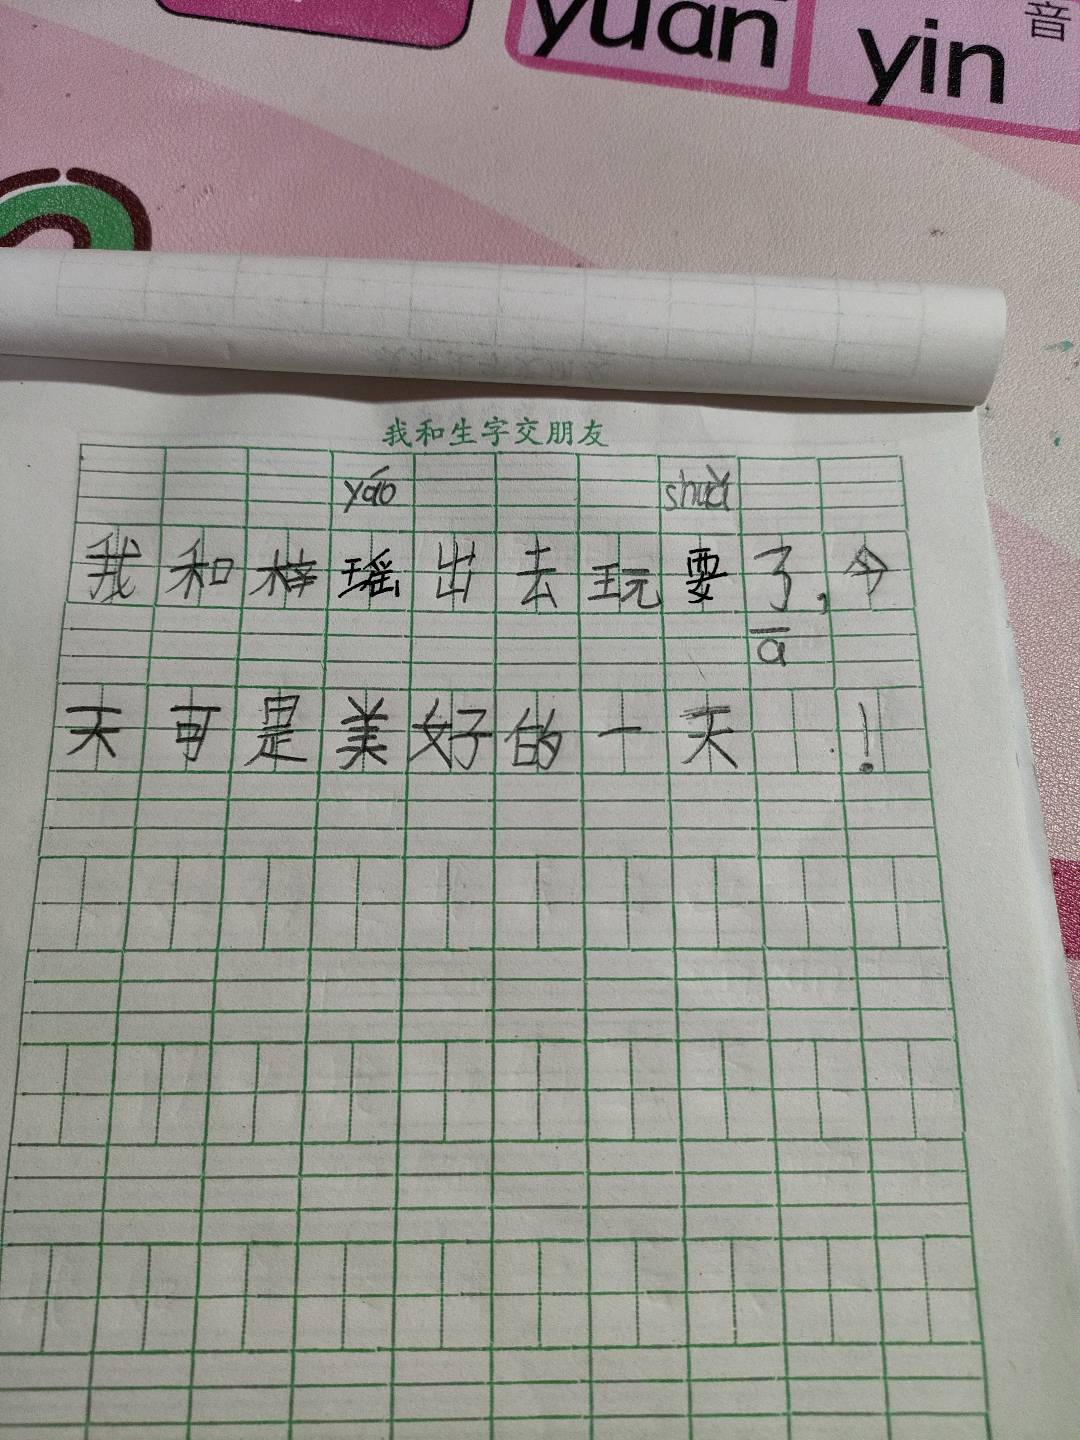 yuan yin 音
我和生字交朋友
yáo shuǎ
我和梓瑶出去玩耍了,今
ā
天可是美好的一天 !